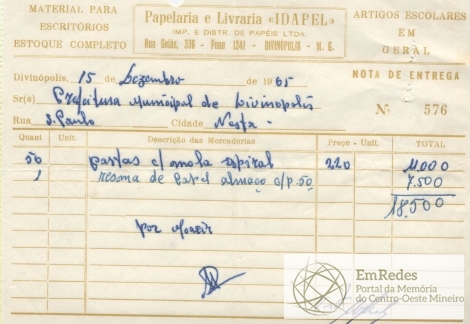 MATERIAL PARA ESCRITÓRIOS ESTOQUE COMPLETO
Papelaria e Livraria «IDAPEL»
IMP. E DISTR. DE PAPÉIS LTDA.
Rua Goiás, 336 - Fone 1241 - DIVINÓPOLIS - M. G.
ARTIGOS ESCOLARES EM GERAL
Divinópolis, 15 de Dezembro de 1965
NOTA DE ENTREGA
Sr(s) Prefeitura Municipal de Divinopolis
Nº 576
Rua S. Paulo Cidade Nesta -
Quant. Unit. Descrição das Mercadorias Preço - Unit. TOTAL
50 pastas c/ mola espiral 220 11.000
1 resma de papel almaço c/p. 50 7.500
18.500
por
EmRedes
Portal da Memória
do Centro-Oeste Mineiro